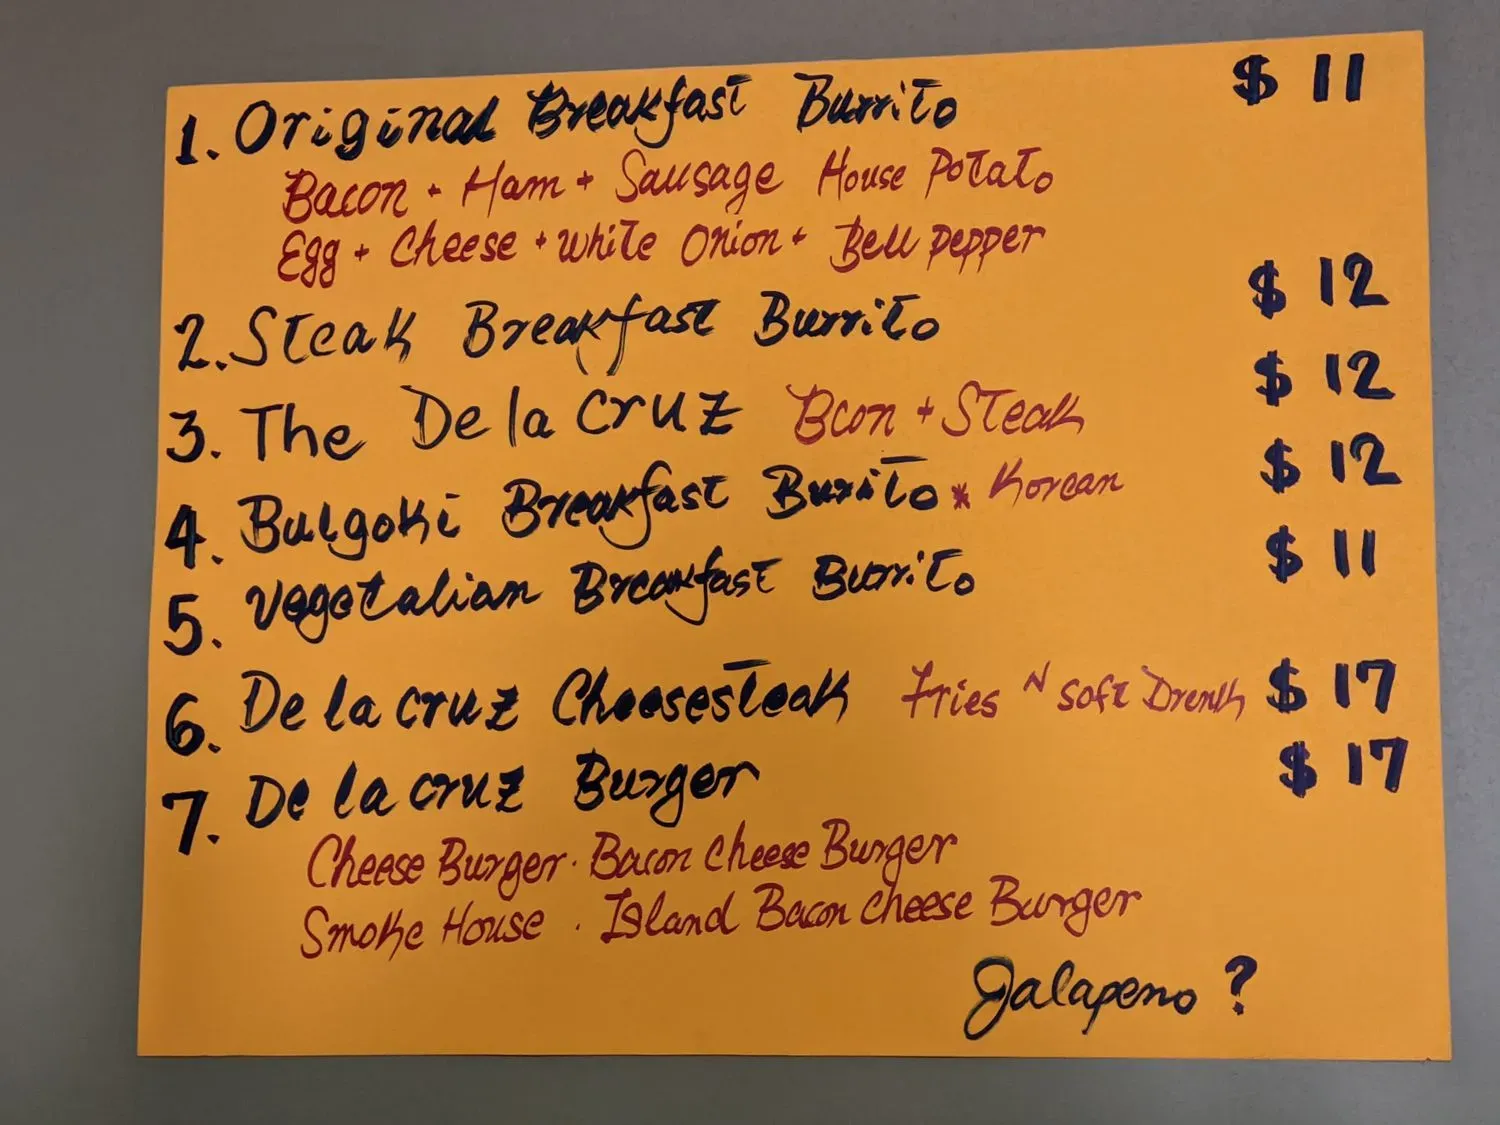 1. Original Breakfast Burrito $ 11
Bacon + Ham + Sausage House Potato
Egg + Cheese + White Onion + Bell pepper
2. Steak Breakfast Burrito $ 12
3. The De la Cruz Bcon + Steak $ 12
4. Bulgoki Breakfast Burrito * Korean $ 12
5. Vegetalian Breakfast Burrito $ 11
6. De la cruz Cheesesteak Fries N Soft Drenk $ 17
7. De la cruz Burger $ 17
Cheese Burger · Bacon Cheese Burger
Smoke House · Island Bacon Cheese Burger
Jalapeno ?